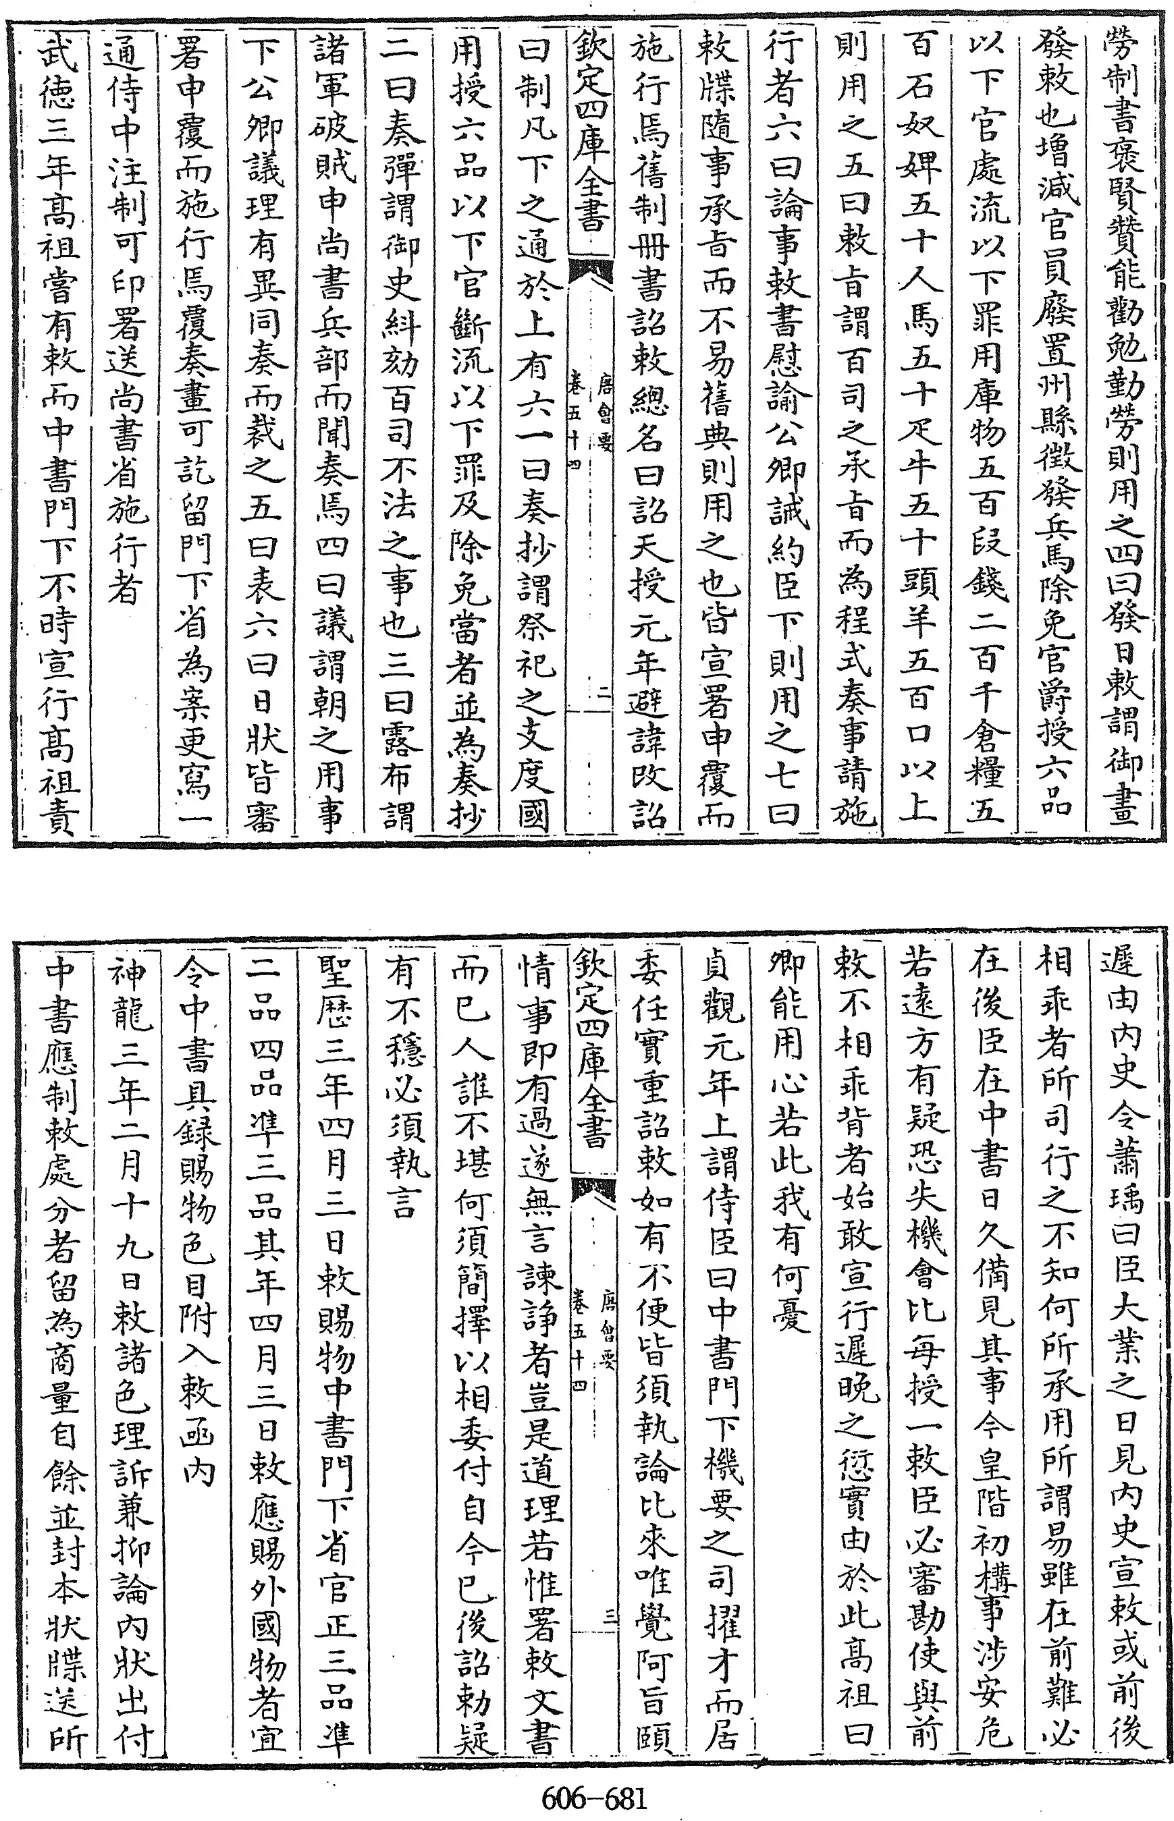 勞制書褒賢贊能勸勉勤勞則用之四曰發日敕謂御畫
發敕也增減官員廢置州縣徵發兵馬除免官爵授六品
以下官處流以下罪用庫物五百段錢二百千倉糧五
百石奴婢五十人馬五十疋牛五十頭羊五百口以上
則用之五曰敕旨謂百司之承旨而為程式奏事請施
行者六曰論事敕書慰諭公卿誡約臣下則用之七曰
敕牒隨事承旨而不易舊典則用之也皆宣署申覆而
施行焉舊制冊書詔敕總名曰詔天授元年避諱改詔
欽定四庫全書
唐會要
卷五十四
二
曰制凡下之通於上有六一曰奏抄謂祭祀之支度國
用授六品以下官斷流以下罪及除免當者並為奏抄
二曰奏彈謂御史糾劾百司不法之事也三曰露布謂
諸軍破賊申尚書兵部而聞奏焉四曰議謂朝之用事
下公卿議理有異同奏而裁之五曰表六曰日狀皆審
署申覆而施行焉覆奏畫可訖留門下省為案更寫一
通侍中注制可印署送尚書省施行者
武德三年高祖嘗有敕而中書門下不時宣行高祖責
遲由內史令蕭瑀曰臣大業之日見內史宣敕或前後
相乖者所司行之不知何所承用所謂易雖在前難必
在後臣在中書日久備見其事今皇階初構事涉安危
若遠方有疑恐失機會比每授一敕臣必審勘使與前
敕不相乖背者始敢宣行遲晚之愆實由於此高祖曰
卿能用心若此我有何憂
貞觀元年上謂侍臣曰中書門下機要之司擢才而居
委任實重詔敕如有不便皆須執論比來唯覺阿旨頤
欽定四庫全書
唐會要
卷五十四
三
情事即有過遂無言諫諍者豈是道理若惟署敕文書
而已人誰不堪何須簡擇以相委付自今已後詔勅疑
有不穩必須執言
聖歷三年四月三日敕賜物中書門下省官正三品準
二品四品準三品其年四月三日敕應賜外國物者宜
令中書具錄賜物色目附入敕函內
神龍三年二月十九日敕諸色理訴兼抑論內狀出付
中書應制敕處分者留為商量自餘並封本狀牒送所
606-681